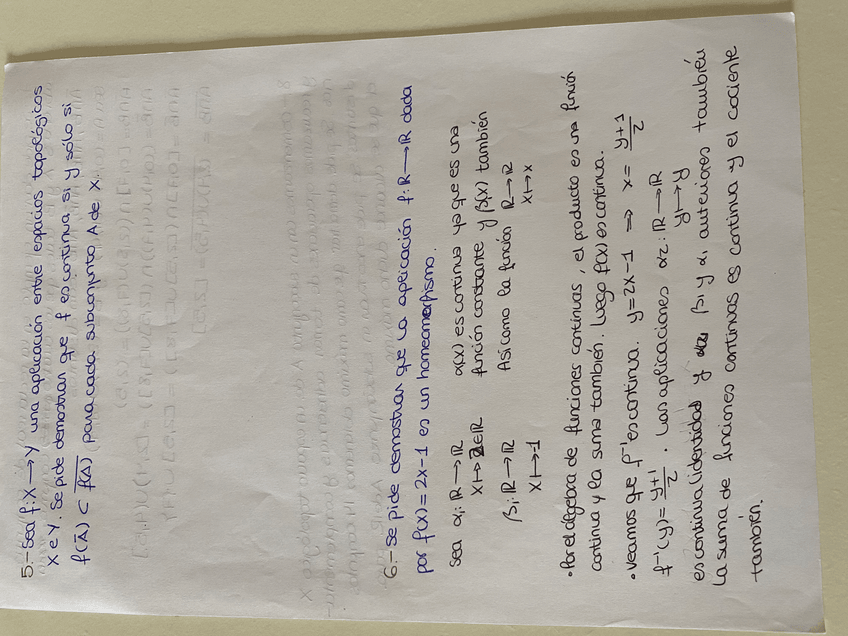 5.- Sea f: X → Y una aplicación entre espacios topológicos
X e Y. Se pide demostrar que f es continua si y sólo si
f(Ā) ⊂ \overline{f(A)} para cada subconjunto A de X.
6.- Se pide demostrar que la aplicación f: ℝ → ℝ dada
por f(x) = 2x-1 es un homeomorfismo.
Sea α₁: ℝ → ℝ α(x) es continua ya que es una
x ↦ 2 ∈ ℝ función constante y β(x) también
β₁: ℝ → ℝ Así como la función ℝ → ℝ
x ↦ -1 x ↦ x
• Por el álgebra de funciones continuas, el producto es una función
continua y la suma también. Luego f(x) es continua.
• Veamos que f⁻¹ es continua. y = 2x-1 ⇒ x = (y+1)/2
f⁻¹(y) = (y+1)/2. Las aplicaciones α₂: ℝ → ℝ
y ↦ y
es continua (identidad) y β₁ y α₁ anteriores también
la suma de funciones continuas es continua y el cociente
también.